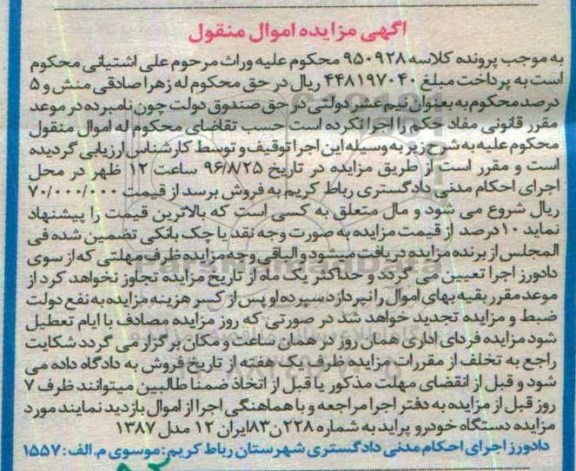 آگهی مزایده اموال منقول
به موجب پرونده کلاسه ۹۵۰۹۲۸ محکوم علیه وراث مرحوم علی اشتیانی محکوم
است به پرداخت مبلغ ۴۴۸۱۹۷۰۴۰ ریال در حق محکوم له زهرا صادقی منش و ۵
درصد محکوم به بعنوان نیم عشر دولتی در حق صندوق دولت چون نامبرده در موعد
مقرر قانونی مفاد حکم را اجرا نکرده است حسب تقاضای محکوم له اموال منقول
محکوم علیه به شرح زیر به وسیله این اجرا توقیف و توسط کارشناس ارزیابی گردیده
است و مقرر است از طریق مزایده در تاریخ ۹۶/۸/۲۵ ساعت ۱۲ ظهر در محل
اجرای احکام مدنی دادگستری رباط کریم به فروش برسد از قیمت ۷۰/۰۰۰/۰۰۰
ریال شروع می شود و مال متعلق به کسی است که بالاترین قیمت را پیشنهاد
نماید ۱۰ درصد از قیمت مزایده به صورت وجه نقد یا چک بانکی تضمین شده فی
المجلس از برنده مزایده دریافت میشود و الباقی وجه مزایده ظرف مهلتی که از سوی
دادورز اجرا تعیین می گردد و حداکثر یک ماه از تاریخ مزایده تجاوز نخواهد کرد از
موعد مقرر بقیه بهای اموال را نپردازد سپرده او پس از کسر هزینه مزایده به نفع دولت
ضبط و مزایده تجدید خواهد شد در صورتی که روز مزایده مصادف با ایام تعطیل
شود مزایده فردای اداری همان روز در همان ساعت و مکان برگزار می گردد شکایت
راجع به تخلف از مقررات مزایده ظرف یک هفته از تاریخ فروش به دادگاه داده می
شود و قبل از انقضای مهلت مذکور یا قبل از اتخاذ ضمنا طالبین میتوانند ظرف ۷
روز قبل از مزایده به دفتر اجرا مراجعه و با هماهنگی اجرا از اموال بازدید نمایند مورد
مزایده دستگاه خودرو پراید به شماره ۲۲۸ن۸۳ایران ۱۲ مدل ۱۳۸۷
دادورز اجرای احکام مدنی دادگستری شهرستان رباط کریم: موسوی م.الف: ۱۵۵۷